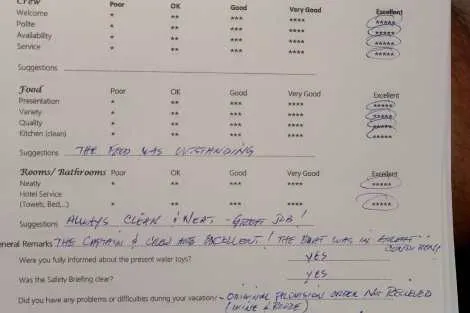 Crew Poor OK Good Very Good Excellent
Welcome * ** *** **** *****
Polite * ** *** **** *****
Availability * ** *** **** *****
Service * ** *** **** *****
Suggestions
Food Poor OK Good Very Good Excellent
Presentation * ** *** **** *****
Variety * ** *** **** *****
Quality * ** *** **** *****
Kitchen (clean) * ** *** **** *****
Suggestions THE FOOD WAS OUTSTANDING
Rooms/ Bathrooms Poor OK Good Very Good Excellent
Neatly * ** *** **** *****
Hotel Service
(Towels, Bed,...) * ** *** **** *****
Suggestions ALWAYS CLEAN & NEAT - GREAT JOB!
eneral Remarks THE CAPTAIN & CREW ARE EXCELLENT! THE BOAT WAS IN
Were you fully informed about the present water toys? YES
Was the Safety Briefing clear? YES
Did you have any problems or difficulties during your vacation? - ORIGINAL PROVISION ORDER NOT RECEIVED